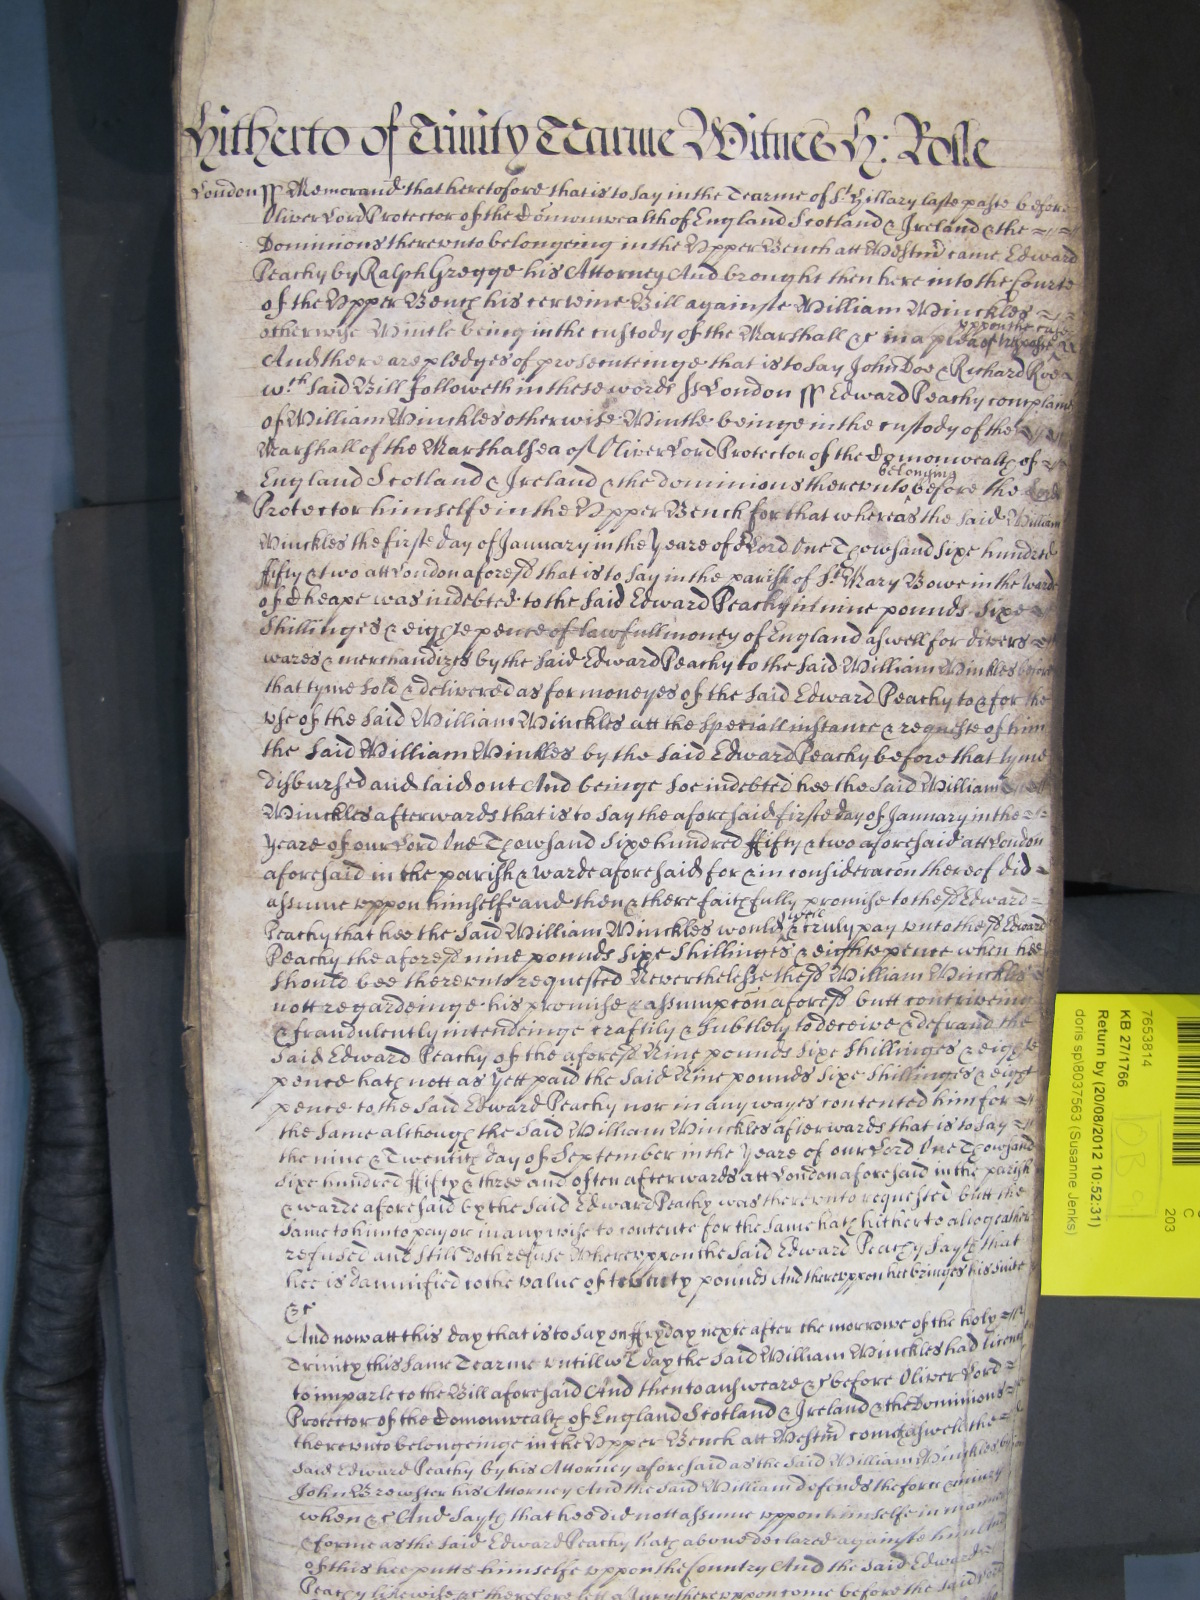 Hitherto of Trinity Tearme Witnes H: Rolle
London ss Memorand that heretofore that is to say in the Tearme of St Hillary laste paste before
Oliver Lord Protector of the Comonwealth of England Scotland & Ireland & the
Dominions thereunto belongeing in the Upper Bench att Westmr came Edward
Peachy by Ralph Gregge his Attorney And brought then here into the Courte
of the Upper Bench his certeine Bill againste William Winckles
otherwise Wintle being in the custody of the Marshall &c in a plea of trespas
uppon the case
And there are pledges of prosecuteinge that is to say John Doe & Richard Roe
wch said Bill followeth in these words ss London ss Edward Peachy complaines
of William Winckles otherwise Wintle beinge in the custody of the
Marshall of the Marshalsea of Oliver Lord Protector of the Comonwealth of
England Scotland & Ireland & the dominions thereunto belonging before the Lord
Protector himselfe in the Upper Bench for that whereas the said William
Winckles the firste day of January in the Yeare of or Lord One Thowsand Sixe hundred
ffifty & two att London aforesd that is to say in the parish of St Mary Bowe in the warde
of Cheape was indebted to the said Edward Peachy in nine pounds Sixe
Shillinges & eighte pence of lawfull money of England aswell for divers
wares & merchandizes by the said Edward Peachy to the said William Winckles before
that tyme sold & delivered as for moneyes of the said Edward Peachy to & for the
use of the said William Winckles att the speciall instance & requeste of him
the said William Winkles by the said Edward Peachy before that tyme
disbursed and laid out And beinge soe indebted hee the said William
Winckles afterwards that is to say the aforesaid firste day of January in the
Yeare of our Lord One Thowsand Sixe hundred ffifty & two aforesaid att London
aforesaid in the parish & warde aforesaid for & in consideracon thereof did
assume uppon himselfe and then & there faithfully promise to the sd Edward
Peachy that hee the said William Winckles would well & truly pay unto the sd Edward
Peachy the aforesd nine pounds Sixe Shillinges & eighte pence when hee
should bee thereunto requested Neverthelesse the sd William Winckles
nott regardeinge his promise & assumpcon aforesd butt contriveing
& fraudulently intendeinge craftily & subtlely to deceive & defraud the
said Edward Peachy of the aforesd Nine pounds Sixe Shillinges & eighte
pence hath nott as yett paid the said Nine pounds Sixe Shillinges & eight
pence to the said Edward Peachy nor in any wayes contented him for
the same although the said William Winckles afterwards that is to say
the nine & Twentith day of September in the Yeare of our Lord One Thowsand
Sixe hundred ffifty & three and often afterwards att London aforesaid in the parish
& warde aforesaid by the said Edward Peachy was thereunto requested butt the
same to him to pay or in any wise to contente for the same hath hitherto altogeather
refused and still doth refuse Whereuppon the said Edward Peachy sayth that
hee is damnified to the value of twenty pounds And thereuppon hee bringes his suite
&c
And now att this day that is to say on ffryday nexte after the morrowe of the holy
Trinity this same Tearme untill wch day the said William Winckles had licence
to imparle to the Bill aforesaid And then to answeare &c before Oliver Lord
Protector of the Comonwealth of England Scotland & Ireland & the Dominions
thereunto belongeinge in the Upper Bench att Westmr cometh aswell the
said Edward Peachy by his Attorney aforesaid as the said William Winckles by
John Brewster his Attorney And the said William defends the force & injury
when &c And sayth that hee did nott assume uppon himselfe in manner
& forme as the said Edward Peachy hath above declared againste him And
of this hee putts himselfe uppon the Country And the said Edward
Peachy likewise &c therefore lett a Jury thereuppon come before the said Lord
7653814
KB 27/1766
Return by (20/08/2012 10:52:31)
doris spl8037563 (Susanne Jenks)
C
203